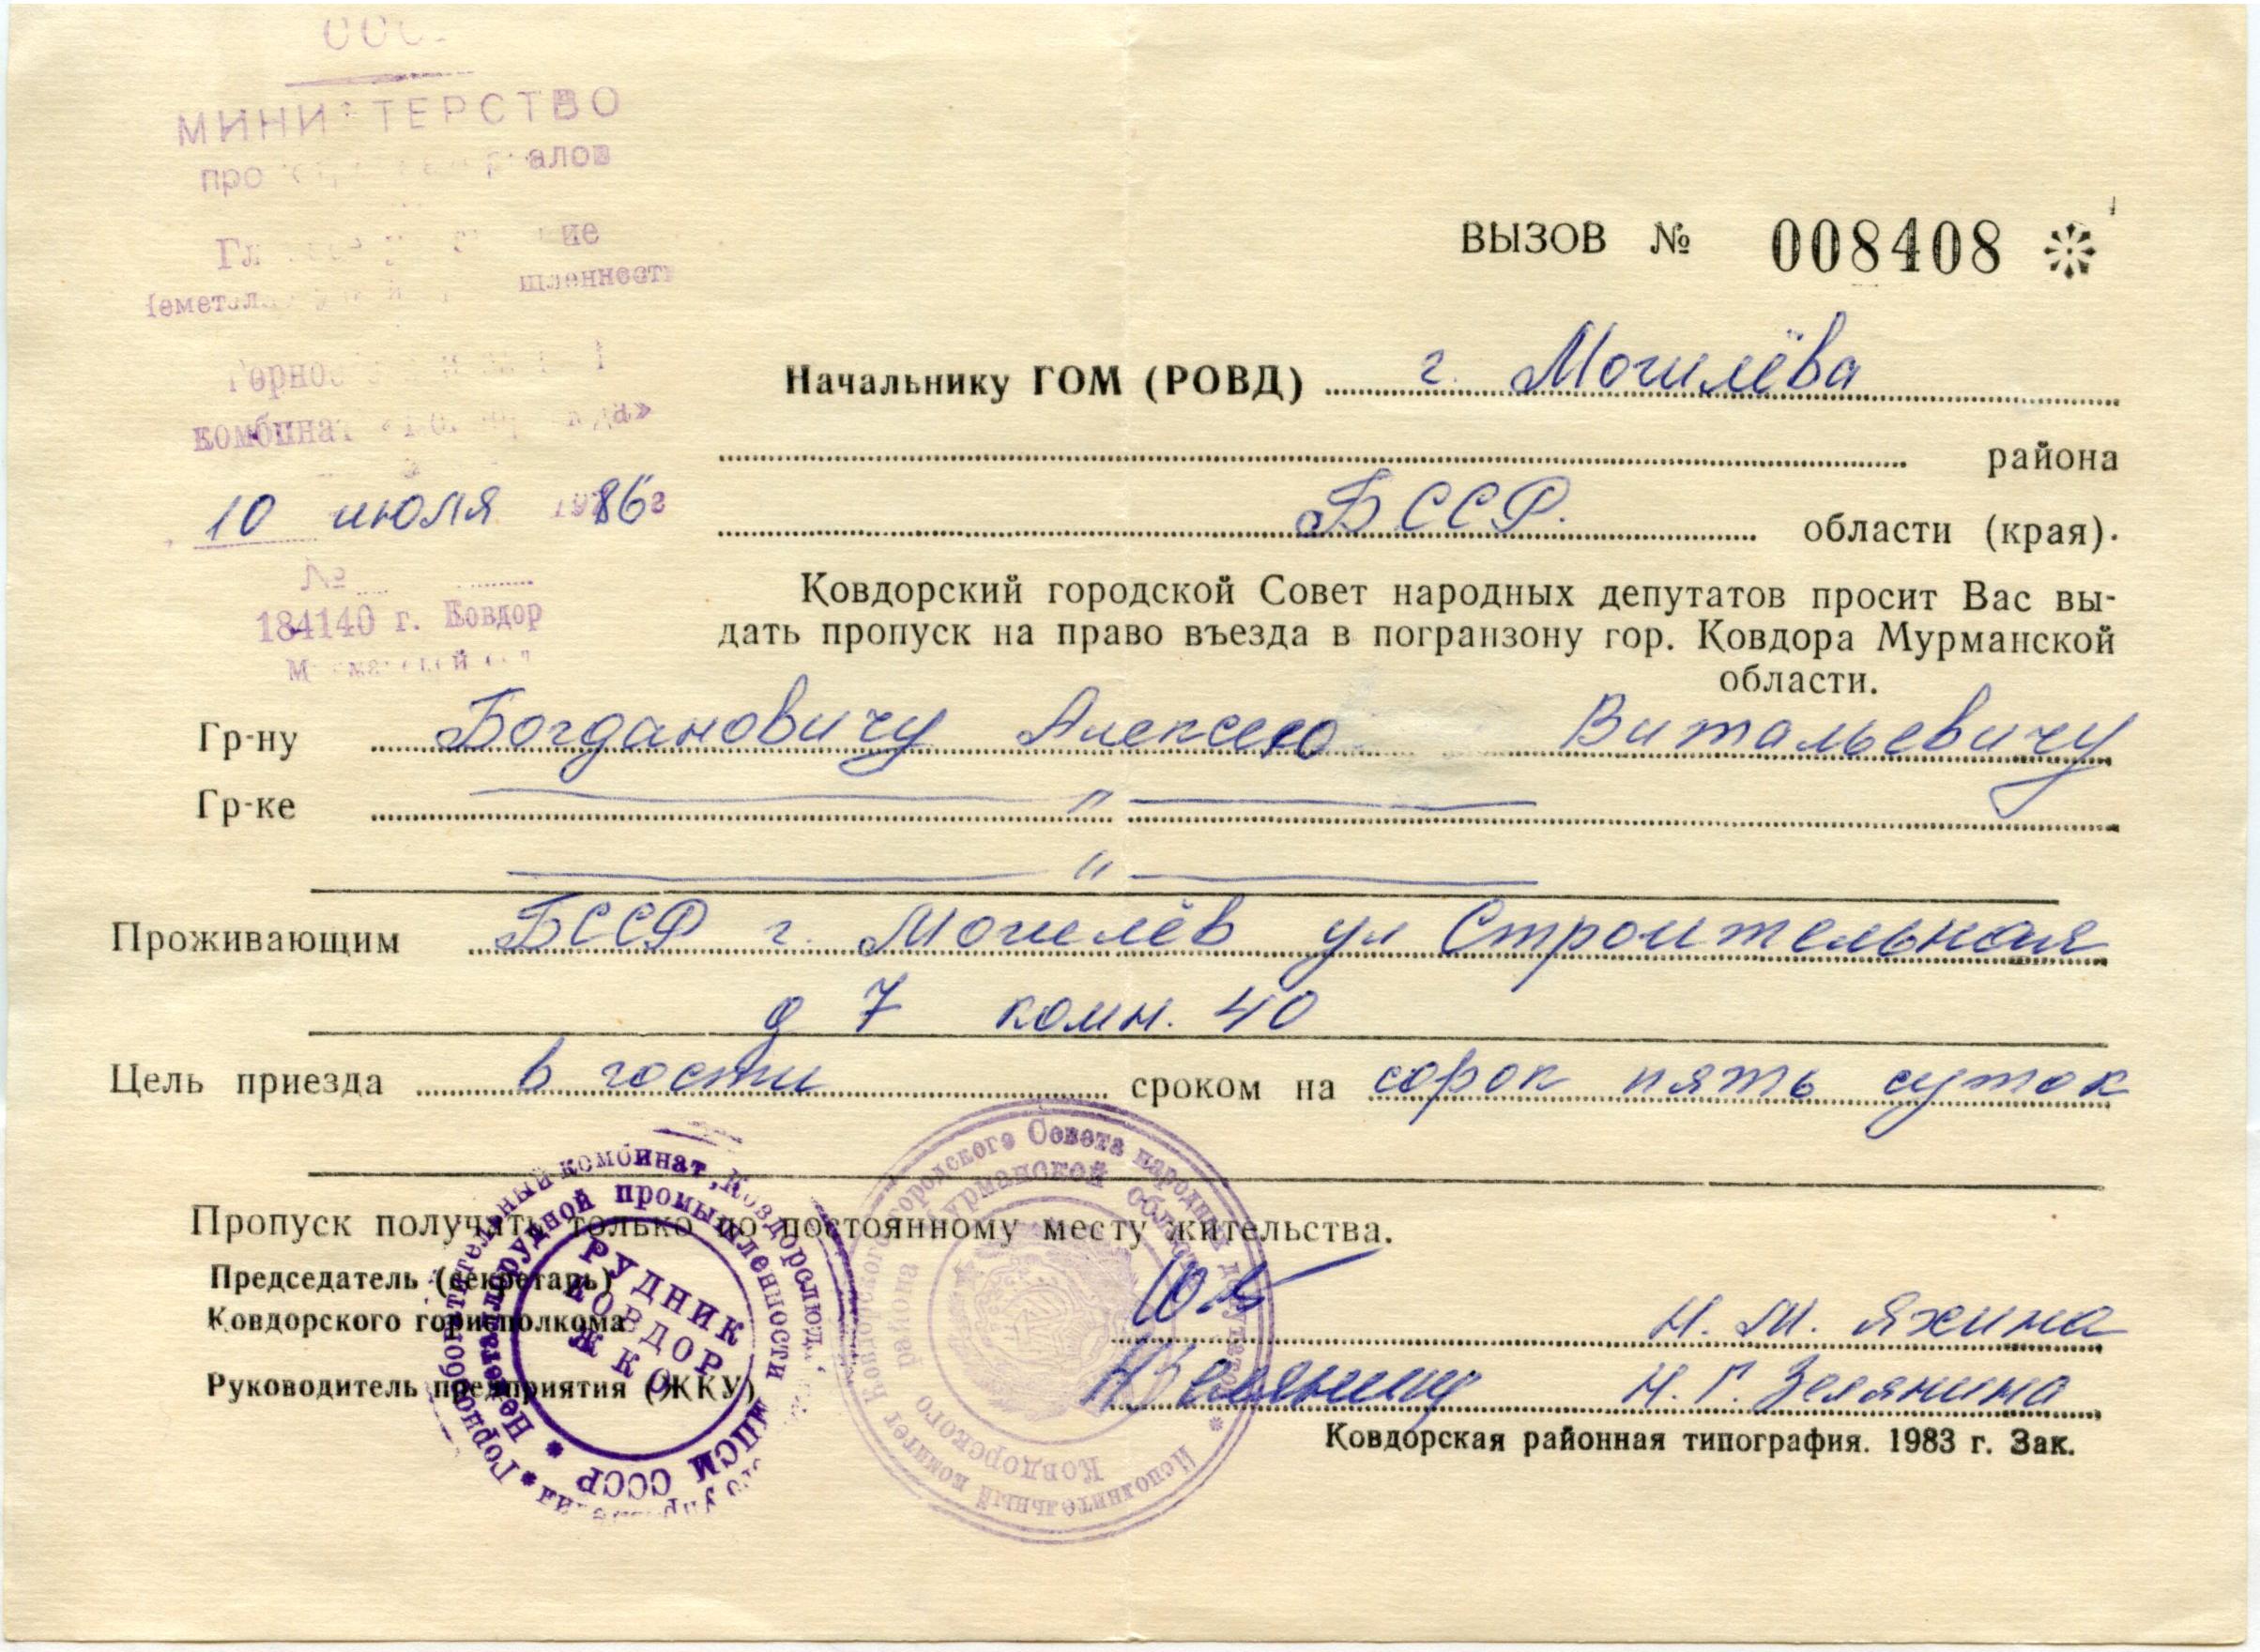 МИНИСТЕРСТВО
алов
комбинат
10 июля 1986 г
№
184140 г. Ковдор
ВЫЗОВ № 008408
Начальнику ГОМ (РОВД) г. Могилёва
района
БССР. области (края).
Ковдорский городской Совет народных депутатов просит Вас вы-
дать пропуск на право въезда в погранзону гор. Ковдора Мурманской
области.
Гр-ну Богдановичу Алексею Витальевичу
Гр-ке — " —
— " —
Проживающим БССР г. Могилёв ул Строительная
д 7 комн. 40
Цель приезда в гости сроком на сорок пять суток
Пропуск получать только по постоянному месту жительства.
Председатель (секретарь)
Ковдорского горисполкома Н. М. Яхина
Руководитель предприятия (ЖКУ) Н. Г. Зелянина
Ковдорская районная типография. 1983 г. Зак.
Неметаллрудной промышленности МПСМ СССР
РУДНИК
КОВДОР
ЖКО
Исполнительный комитет Ковдорского городского Совета народных депутатов
Ковдорского района Мурманской области